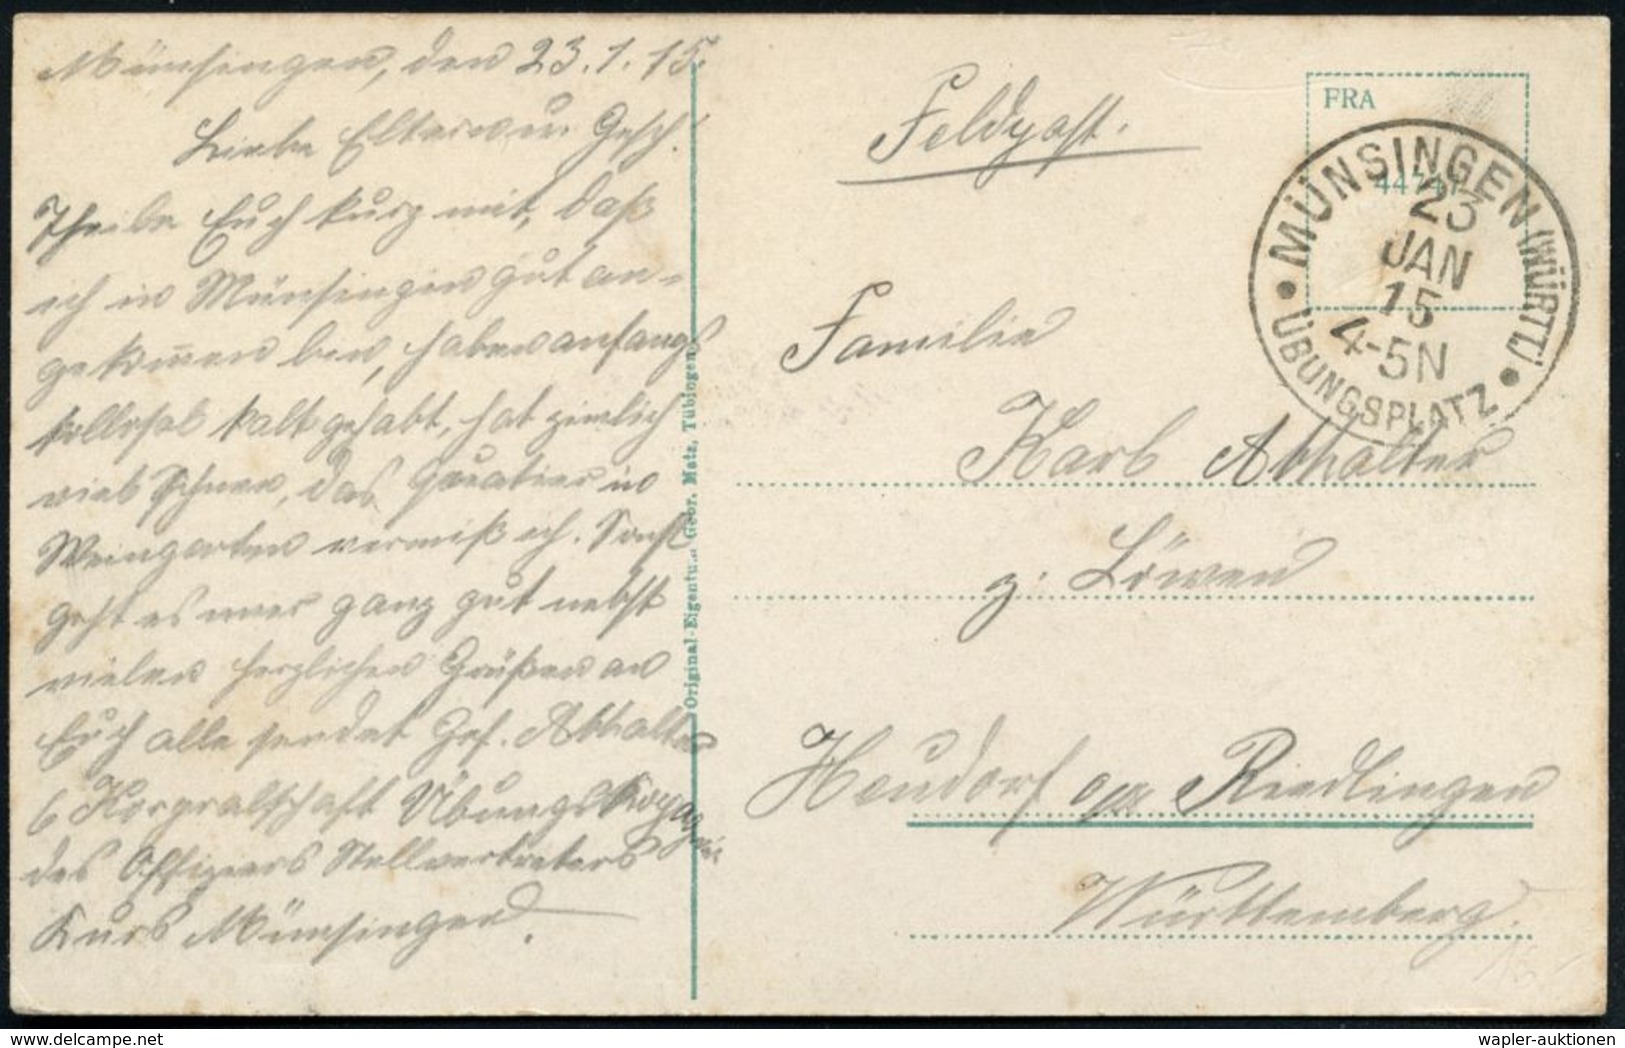 Münsingen, den 23.1.15.
Liebe Eltern u. Gesch.!
Theile Euch kurz mit, daß
ich in Münsingen gut an-
gekom̅en bin, haben anfangs
kollosal kalt gehabt, hat ziemlich
viel Schnee, das Quatier in
Weingarten vermiß ich. Sonst
geht es mir ganz gut nebst
vielen herzlichen Grüßen an
Euch alle sendet Gef. Abhalter
6 Korporalschaft Übungs
des Offiziers Stellvertreters
Kurs Münsingen.
Original-Eigentum Gebr. Metz, Tübingen
Feldpost.
FRA
MÜNSINGEN (WÜRTT.)
23
JAN
15
4-5N
ÜBUNGSPLATZ
Familie
Karl Abhalter
z. Löwen
Heudorf Riedlingen
Württemberg.
delcampe.net
wapler-auktionen